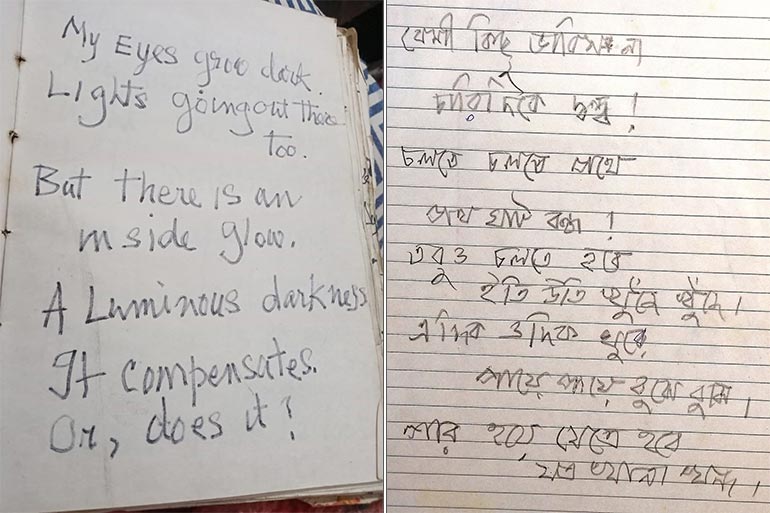 My Eyes grow dark.
Lights going out there
too.
But there is an
inside glow.
A Luminous darkness
It compensates.
Or, does it?
বেশী কিছু ভাবিসনে না
চারিদিকে দ্বন্দ্ব!
চলতে চলতে পথে
পথ ঘাট বন্ধ!
তবুও চলতে হবে
ইতি উতি খুঁজে খুঁজে।
এদিক ওদিক ঘুরে,
পায়ে পায়ে, বুঝে বুঝে।
পার হয়ে যেতে হবে
যত খানা